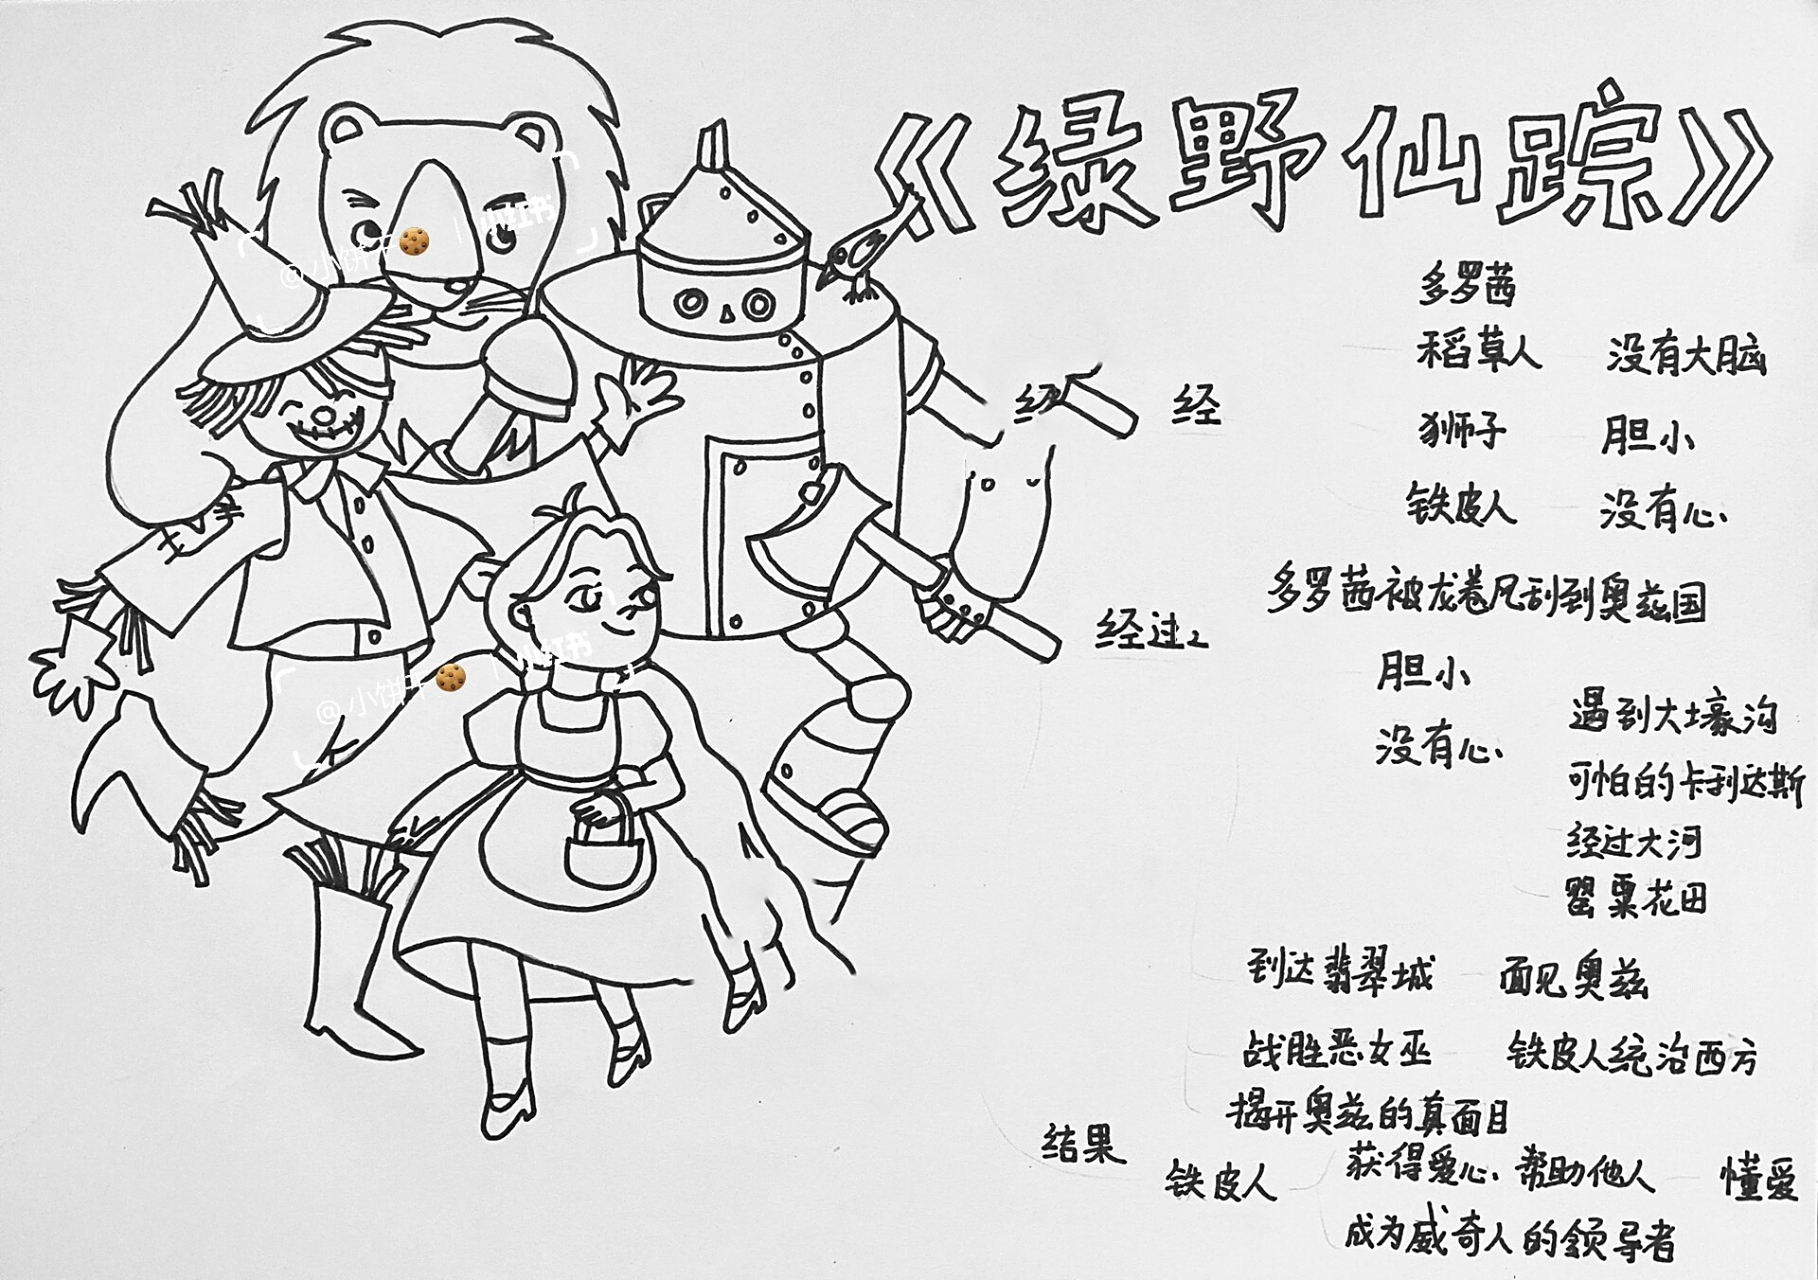 《绿野仙踪》
多罗茜
稻草人 没有大脑
经 经
狮子 胆小
铁皮人 没有心
多罗茜被龙卷风刮到奥兹国
经过2
胆小
遇到大壕沟
没有心
可怕的卡利达斯
经过大河
罂粟花田
到达翡翠城 面见奥兹
战胜恶女巫 铁皮人统治西方
揭开奥兹的真面目
结果
铁皮人 获得爱心、帮助他人 懂爱
成为威奇人的领导者
@小饼干🍪 | 小红书
@小饼干🍪 | 小红书